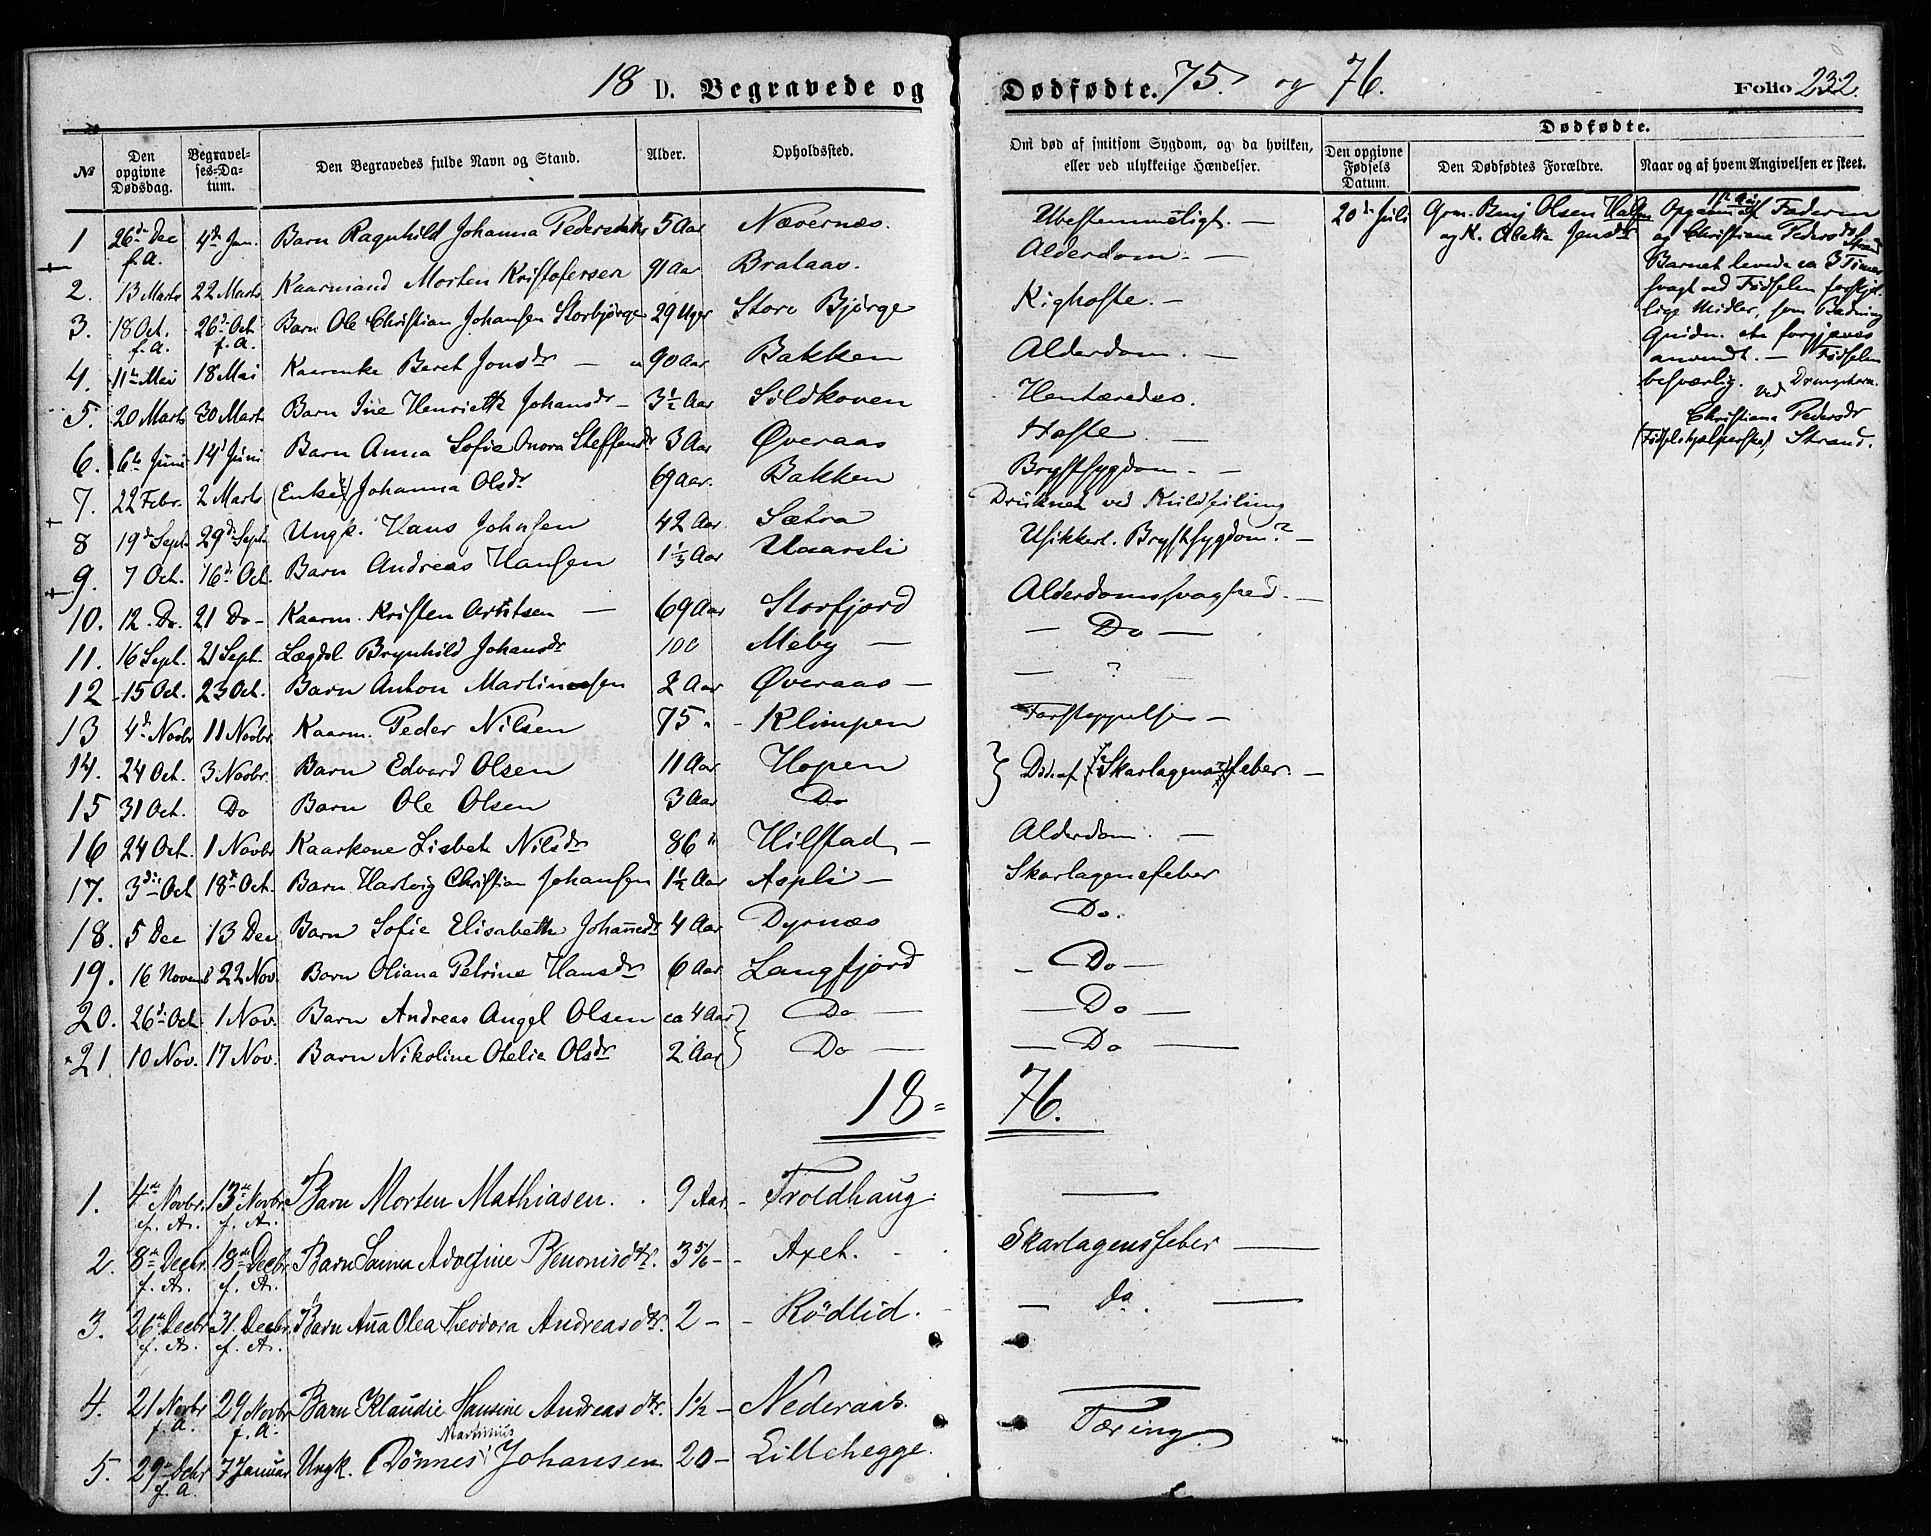 18 D. Begravede og Dødfødte. 75. og 76. Folio 232.
Dødfødte.
№ Den opgivne Dødsdag. Begravelses-Datum. Den Begravedes fulde Navn og Stand. Alder. Opholdssted. Om død af smitsom Sygdom, og da hvilken, eller ved ulykkelige Hændelser. Den opgivne Fødsels Datum. Den Dødfødtes Forældre. Naar og af hvem Angivelsen er skeet.
1 26de Dec f.A. 4de Jan. Barn Ragnhild Johanna Pedersdtr 5 Aar Nævernæs. Ubestemmeligt. — 20de Juli Grm. Benj Olsen
og K. Jensdr
Faderen
og Christiane Pedersdr Strand
Barnet levede ca 3 Timer
svagt ved Fødselen forskjel-
lige Midler, som Badning
Gnidn. etc forgjæves
anvendt. — Fødselen
besværlig. ved
Christiana Pedersdr
(Fødselshjælperske) Strand.
2. 13 Marts 22 Marts Kaarmand Morten Kristofersen 91 Aar Brataas. Alderdom. —
3. 18 Oct. f.A. 26de Oct f.A. Barn Ole Christian Johansen Storbjørge 29 Uger Store Bjørge Kighoste. —
4. 11te Mai 18 Mai Kaarenke Beret Jonsdr — 90 Aar Bakken Alderdom. —
5. 20 Marts 30 Marts Barn Ine Henriette Johansdr — 3½ Aar Sildkoven
6. 6te Juni 14de Juni Barn Anna Sofie Onora Steffensdr 3 Aar Øveraas Hoste —
7. 22 Febr. 2 Marts (Enke) Johanna Olsdr 69 Aar. Bakken Brystsygdom. —
8 19de Sept. 29de Sept. Ungk. Hans Johnsen 42 Aar Sætra Druknet ved Kuldseiling
9. 7 Oct. 16de Oct. Barn Andreas Hansen 1⅓ Aar Usikkert. Brystsygdom? —
10. 12. Do. 21 Do — Kaarm. Kristen Arntsen — 69 Aar Storfjord Alderdomssvaghed. —
11. 16 Sept. 21 Sept. Lægdsl Brynhild Johansdr 100 Meby — — Do —
12 15 Oct. 23 Oct. Barn Anton Martinussen 2 Aar Øveraas — — ?
13 4de Novbr 11 Novbr. Kaarm. Peder Nilsen 75 " - Klimpen Forstoppelse —
14. 24 Oct. 3 Novbr. Barn Edvard Olsen 11 Aar Hopen } Død af (Skarlagensfeber. —
15 31 Oct. Do Barn Ole Olsen 3 Aar Do
16 24 Oct. 1 Novbr Kaarkone Lisbet Nilsdr 86 " Hilstad — Alderdom. —
17. 3die Oct 18de Oct. Barn Hartvig Christian Johansen 1½ Aar Aspli — Skarlagensfeber
18. 5 Dec 13 Dec Barn Sofie Elisabeth Johannesdr 4 Aar Dyrnæs Do.
19. 16 Novemb 22 Nov. Barn Oliana Petrine Hansdr 6 Aar Langfjord — Do —
20. 26de Oct. 1 Nov. Barn Andreas Angel Olsen ca 4 Aar } Do — — Do —
21 10 Nov. 17 Nov. Barn Nikoline Otelie Olsdr 2 Aar } Do — — Do —
18 = 76.
1. 4de Novbr. f. A. 13de Novbr. f. A. Barn Morten Mathiasen. 9 Aar - Troldhaug. —
2. 8de Decbr. f. A. 18de Decbr. f. A. Barn Adolfine Benonisdtr. 3 5/6 - Axet. Skarlagensfeber —
3. 26de Decbr f. A. 31. Decbr. f. A. Barn Anna Olea Theodora Andreasdtr. 2 - - Rödlid. — do. —
4. 21 Novbr f. A. 29 Novbr f. A. Barn Klaudie Hansine Andreasdtr. 1½ - Nederaas. —
5. 29de f. A. 7 Januar Ungk. Rönnes Martinus Johansen 20 - Lillehegge. Tæring.